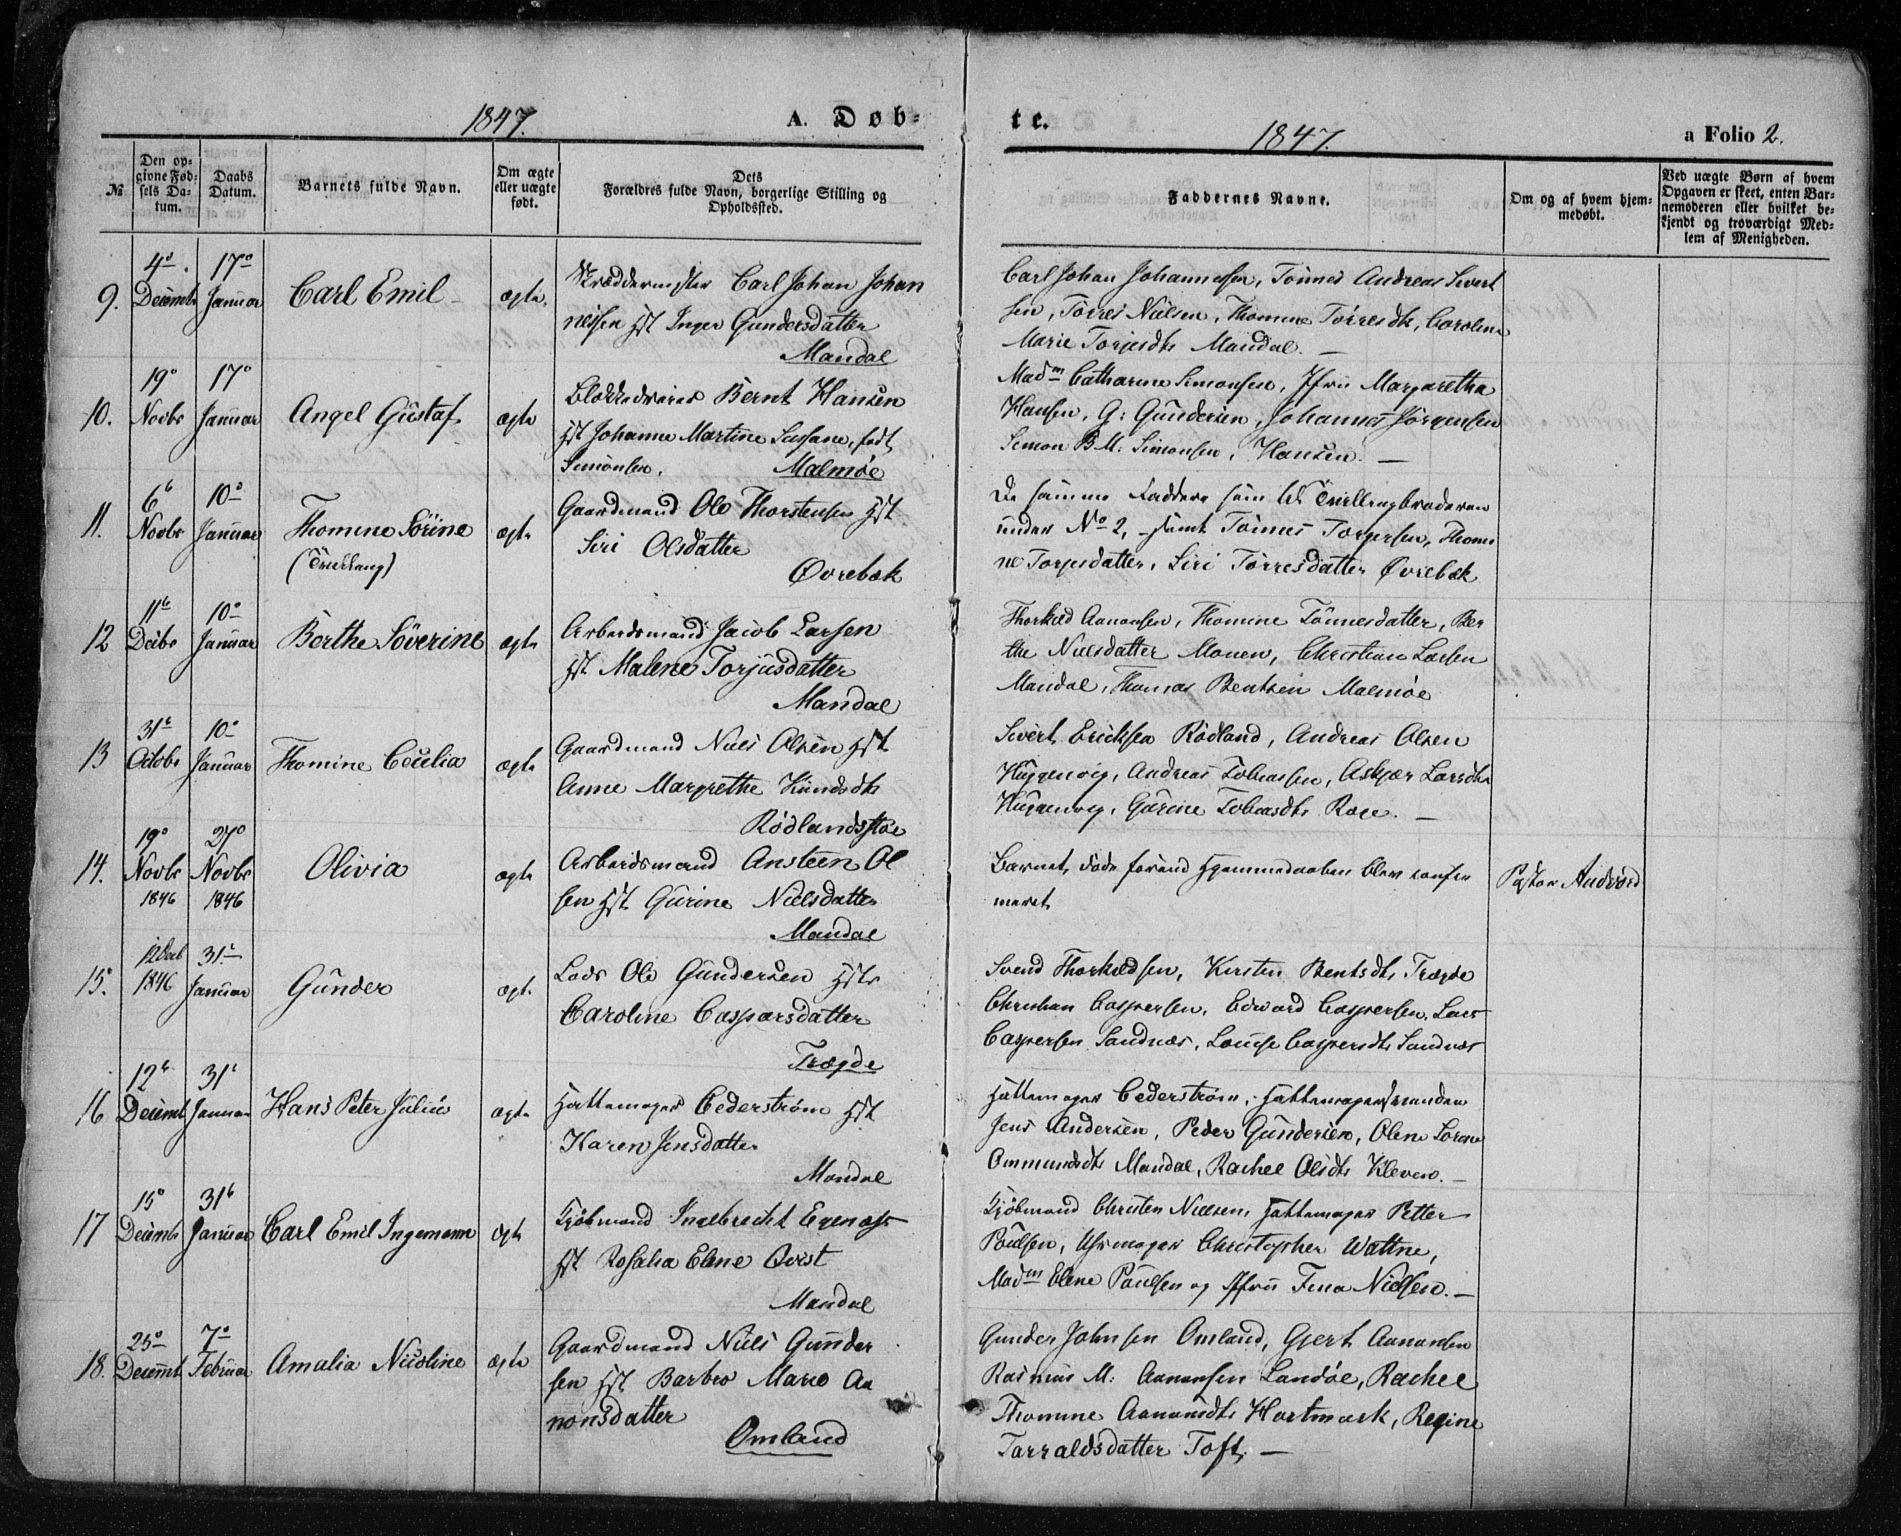 1847.
A. Døb-
te.
1847.
a Folio 2.
№
Den op-
givne Fød-
sels Da-
tum.
Daabs
Datum.
Barnets fulde Navn.
Om ægte
eller uægte
født.
Dets
Forældres fulde Navn, borgerlige Stilling og
Opholdssted.
Faddernes Navne.
Om og af hvem hjem-
medøbt.
Ved uægte Børn af hvem
Opgaven er skeet, enten Bar-
nemoderen eller hvilket be-
kjendt og troværdigt Med-
lem af Menigheden.
9.
4de
Decembr
17de
Januar
Carl Emil
ægte.
Skræddermester Carl Johan Johan
nessen Hst Inger Gundersdatter
Mandal
Carl Johan Johannessen, Tönnes Andreas Sivert
sen, Torres Nielsen, Thomine Torresdtr, Caroline
Marie Torjesdtr Mandal. —
10.
19de
Novbr
17de
Januar
Angel Gustaf
ægte
Blokkedreier Bernt Hansen
Hst Johanne Martine Sussane, født
Simonsen. Malmøe
Madm Catharine Simonsen, Jfru Margaretha
Hansen, G: Gundersen, Johannes Jörgensen
Simon B M: Simonsen, Hansen. —
11.
6te
Novbr
10de
Januar
Thomine Sörine
(Tvilling)
ægte
Gaardmand Ole Thorstensen Hst
Siri Olsdatter
Øvrebæk
De samme Faddere som til Tvillingbroderen
under No 2, samt Tönnes Torjersen, Thomi
ne Torjesdatter, Siri Torresdatter Øvrebæk
12
11te
Decbr
10de
Januar
Berthe Söverine
ægte
Arbeidsmand Jacob Larsen
Hst Malene Torjusdatter
Mandal
Thorkild Aanonsen, Thomine Tönnesdatter, Ber
the Nielsdatter Monen, Christian Larsen
Mandal, Thomas Bentsen Malmøe
13
31te
Octobr
10de
Januar
Thomine Cecilia
ægte
Gaardmand Niels Olsen Hst
Anne Margrethe Knudsdtr
Rødlandsfløe
Sivert Ericksen Rödland, Andreas Olsen
Huggenvig, Andreas Tobiassen, Askjær Larsdtr
Huggenvig, Gurine Tobiasdtr Roge. —
14.
19de
Novbr
1846
27de
Novbr
1846
Olivia
ægte
Arbeidsmand Ansteen Ol
sen Hst Gurine Nielsdatter
Mandal
Barnet døde førend Hjemmedaaben blev confir
meret
Pastor
15.
12 Decb
1846
31te
Januar
Gunder
ægte
Lods Ole Gundersen Hst
Caroline Caspersdatter
Trægde
Svend Thorkildsen, Kirsten Bentsdtr Trægde
Christian Caspersen, Edward Caspersen, Lars
Caspersen Sandnæs, Louise Caspersdtr Sandnæs
16
12te
Decembr
31te
Januar
Hans Peter Julius
ægte
Hattemager Cederström Hst
Karen Jensdatter
Mandal
Hattemager Cederström, Hattemagersvenden
Jens Andersen, Peder Gundersen, Olene Sorene
Ommundsdtr Mandal, Rachel Olsdtr Kleven. —
17
15de
Decembr
31te
Januar
Carl Emil Ingemann
ægte
Kjøbmand Ingebrecht Egenæss
Hst Rosalia Elene Qvist
Mandal
Kjøbmand Christen Nielsen, Hattemager Petter
Poulsen, Uhrmager Christopher Wattne,
Madm Elene Paulsen og Jfru Tina Nielsen. —
18.
25de
Decembr
7de
Februar
Amalia Nicoline
ægte
Gaardmand Niels Gunder
sen Hst Barbro Marie Aa
nonsdatter
Omland
Gunder Johnsen Omland, Gjert Aanonsen
Rasmus M: Aanonsen Landøe, Rachel
Thomine Aanonsdtr Hartmark, Regine
Tarraldsdatter Toft. —